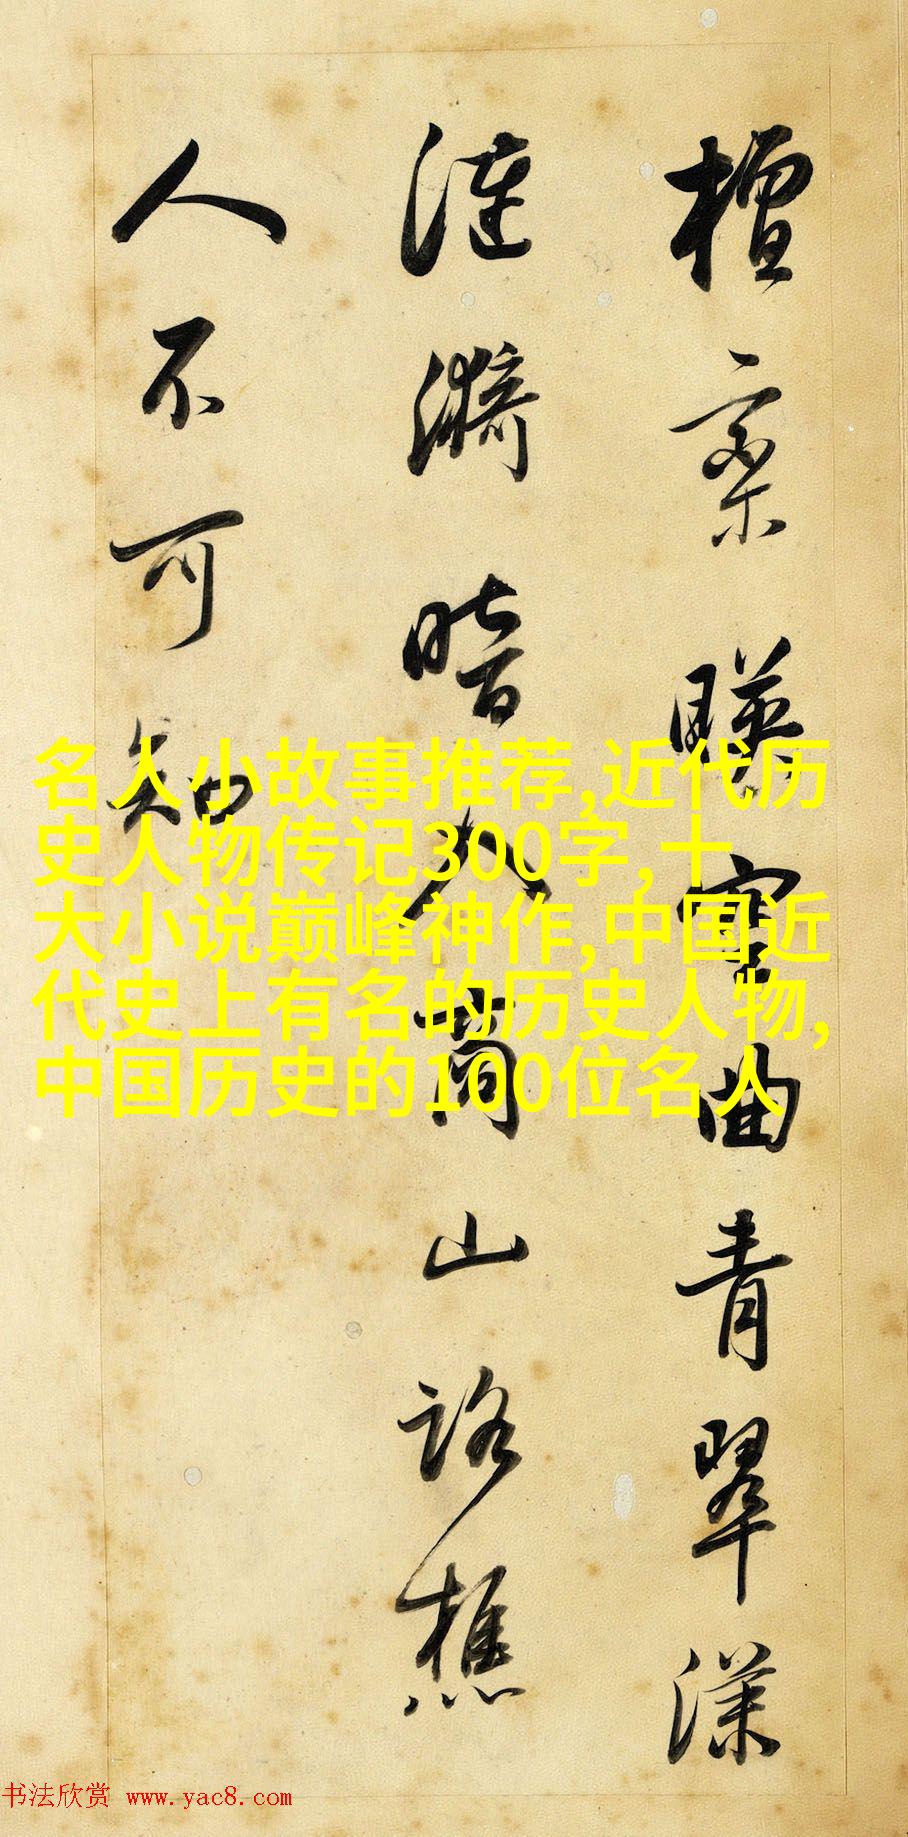 檀欒暎空曲青翠漾
漣漪暗入商山路樵
人不可知
名人小故事推荐,近代历
史人物传记300字,十
大小说巅峰神作,中国近
代史上有名的历史人物,
中国历史的100位名人
书法欣赏 www.yac8.com